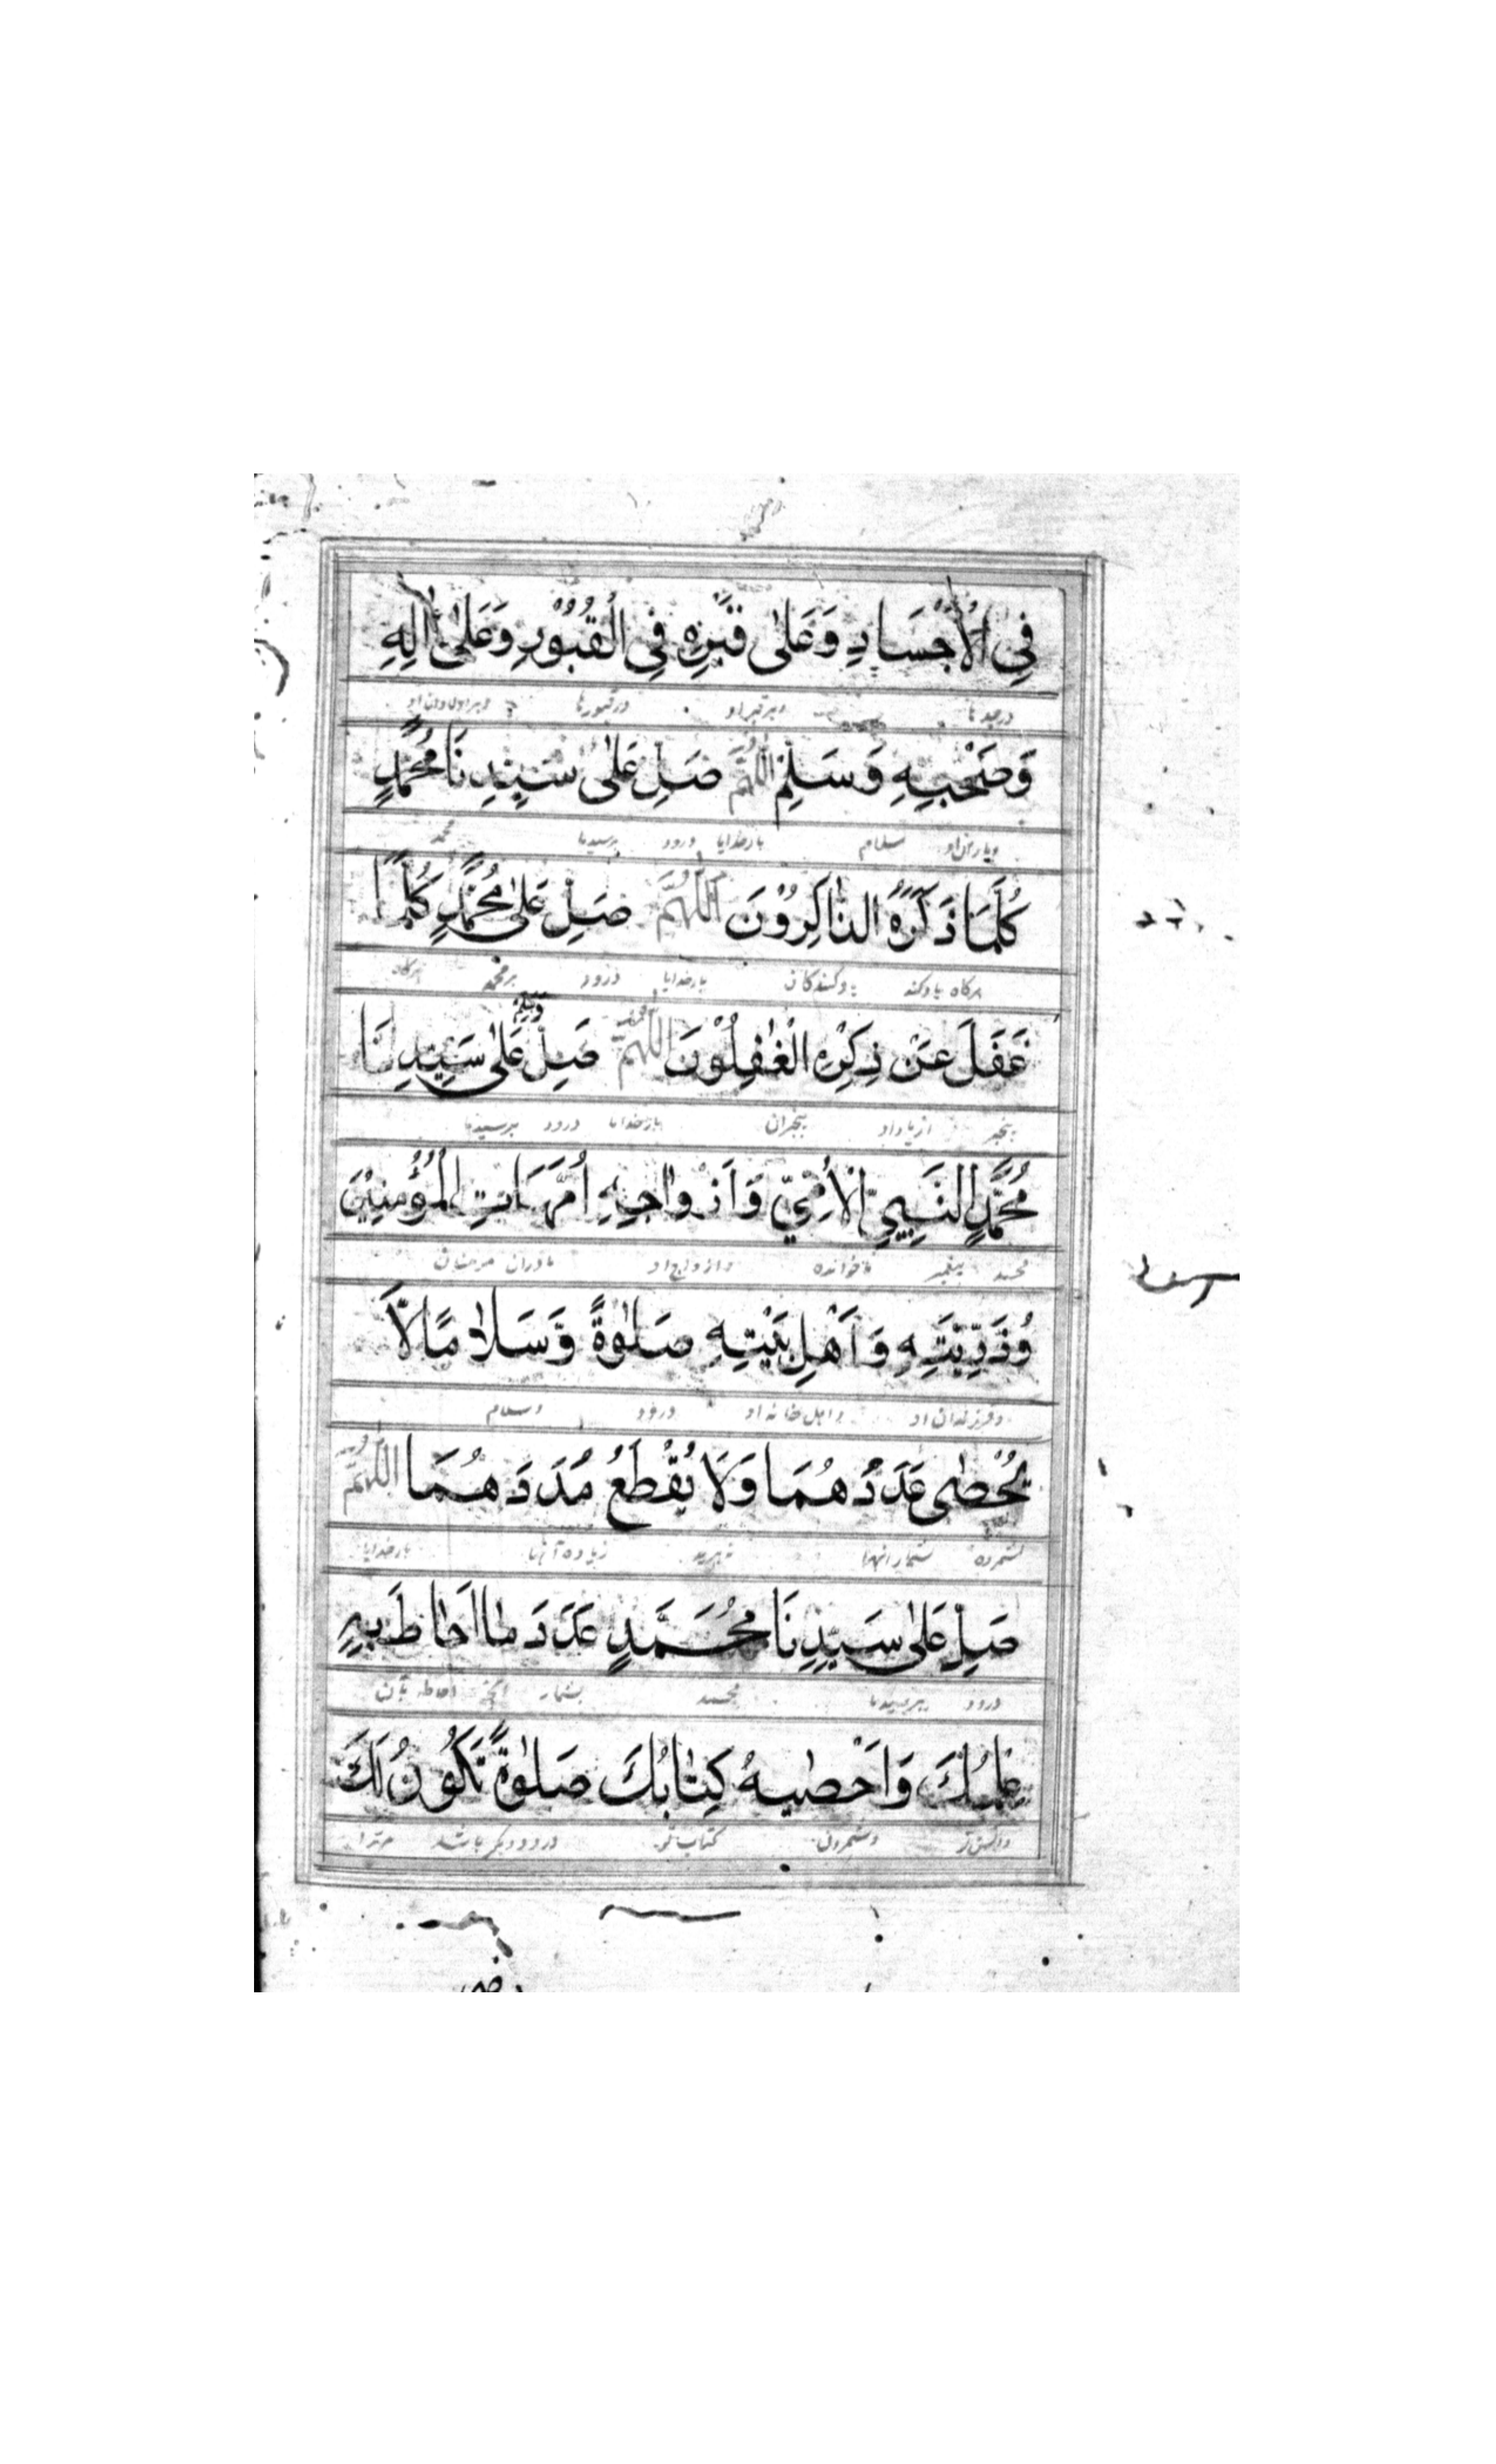 فِي الْأَجْسَادِ وَعَلٰى قَبْرِهٖ فِي الْقُبُوْرِ وَعَلٰى اٰلِهٖ
در جسدها وبر قبر او در قبورها وبر اولاد او
وَصَحْبِهٖ وَسَلِّمْ اَللّٰهُمَّ صَلِّ عَلٰى سَيِّدِنَا مُحَمَّدٍ
ویاران او سلام بارخدایا درود برسیدما محمد
كُلَّمَا ذَكَرَهُ الذَّاكِرُوْنَ اَللّٰهُمَّ صَلِّ عَلٰى مُحَمَّدٍ كُلَّمَا
هرکاه یاد کند یاد کنندکان بارخدایا درود برمحمد هرکاه
غَفَلَ عَنْ ذِكْرِهِ الْغٰفِلُوْنَ اَللّٰهُمَّ صَلِّ وَسَلِّمْ عَلٰى سَيِّدِنَا
بیخبر از یاد او بیخبران بارخدایا درود برسیدما
مُحَمَّدٍ النَّبِيِّ الْأُمِّيِّ وَاَزْوَاجِهٖ اُمَّهَاتِ الْمُؤْمِنِيْنَ
محمد پیغمبر ناخوانده وازواج او مادران مومنان
وَذُرِّيَّتِهٖ وَاَهْلِ بَيْتِهٖ صَلٰوةً وَّسَلَامًا لَّا
وفرزندان او واهل خانه او درود وسلام
يُحْصٰى عَدَدُهُمَا وَلَا يُقْطَعُ مَدَدُهُمَا اَللّٰهُمَّ
نشمرده شمار انها زیاده آنها بارخدایا
صَلِّ عَلٰى سَيِّدِنَا مُحَمَّدٍ عَدَدَ مَا اَحَاطَ بِهٖ
درود برسیدما محمد بشمار انچه احاطه بآن
عِلْمُكَ وَاَحْصٰيهُ كِتَابُكَ صَلٰوةً تَكُوْنُ لَكَ
وشمردن کتاب تو درود دیکر باشد